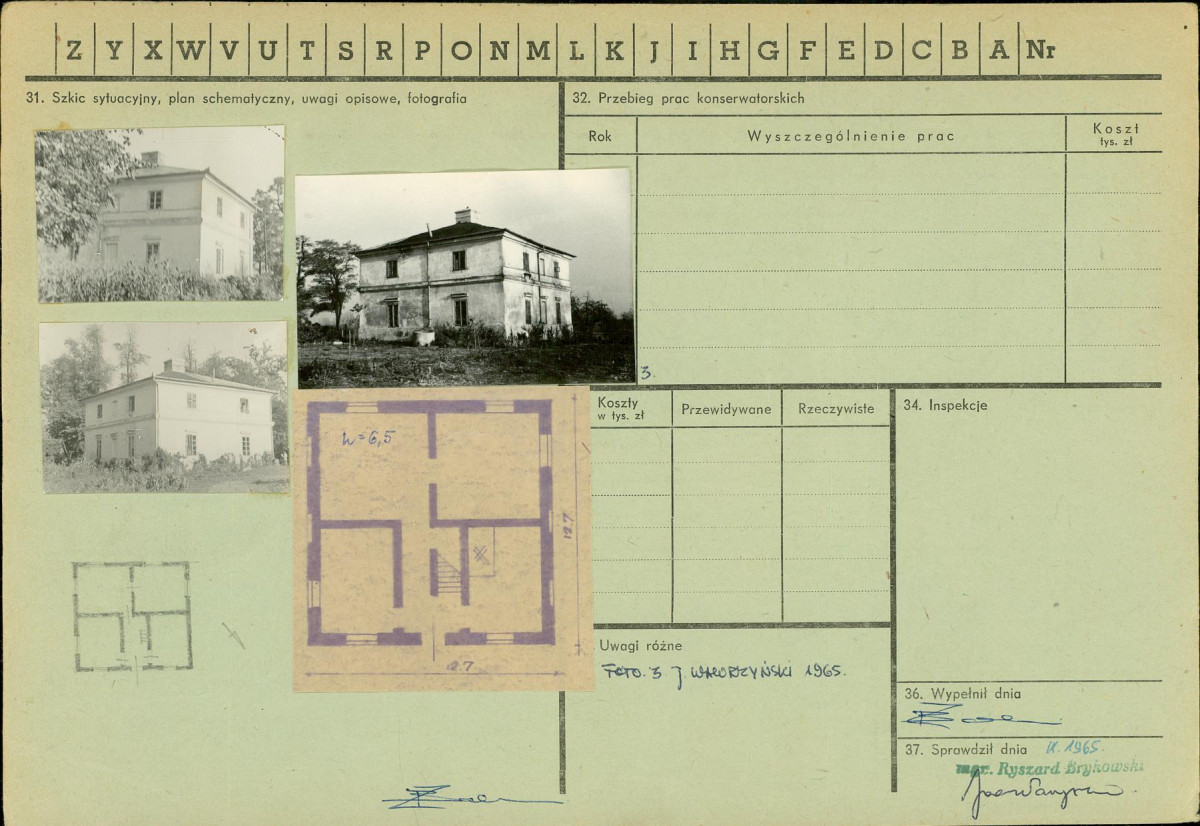 Z Y X W V U T S R P O N M L K J I H G F E D C B A Nr
31. Szkic sytuacyjny, plan schematyczny, uwagi opisowe, fotografia
32. Przebieg prac konserwatorskich
Rok
Wyszczególnienie prac
Koszt
tys. zł
3.
Koszty
w tys. zł
Przewidywane
Rzeczywiste
34. Inspekcje
h=6,5
12.7
12.7
Uwagi różne
FOTO. 3 J. 1965.
36. Wypełnił dnia
37. Sprawdził dnia 1965.
mgr. Ryszard Brykowski